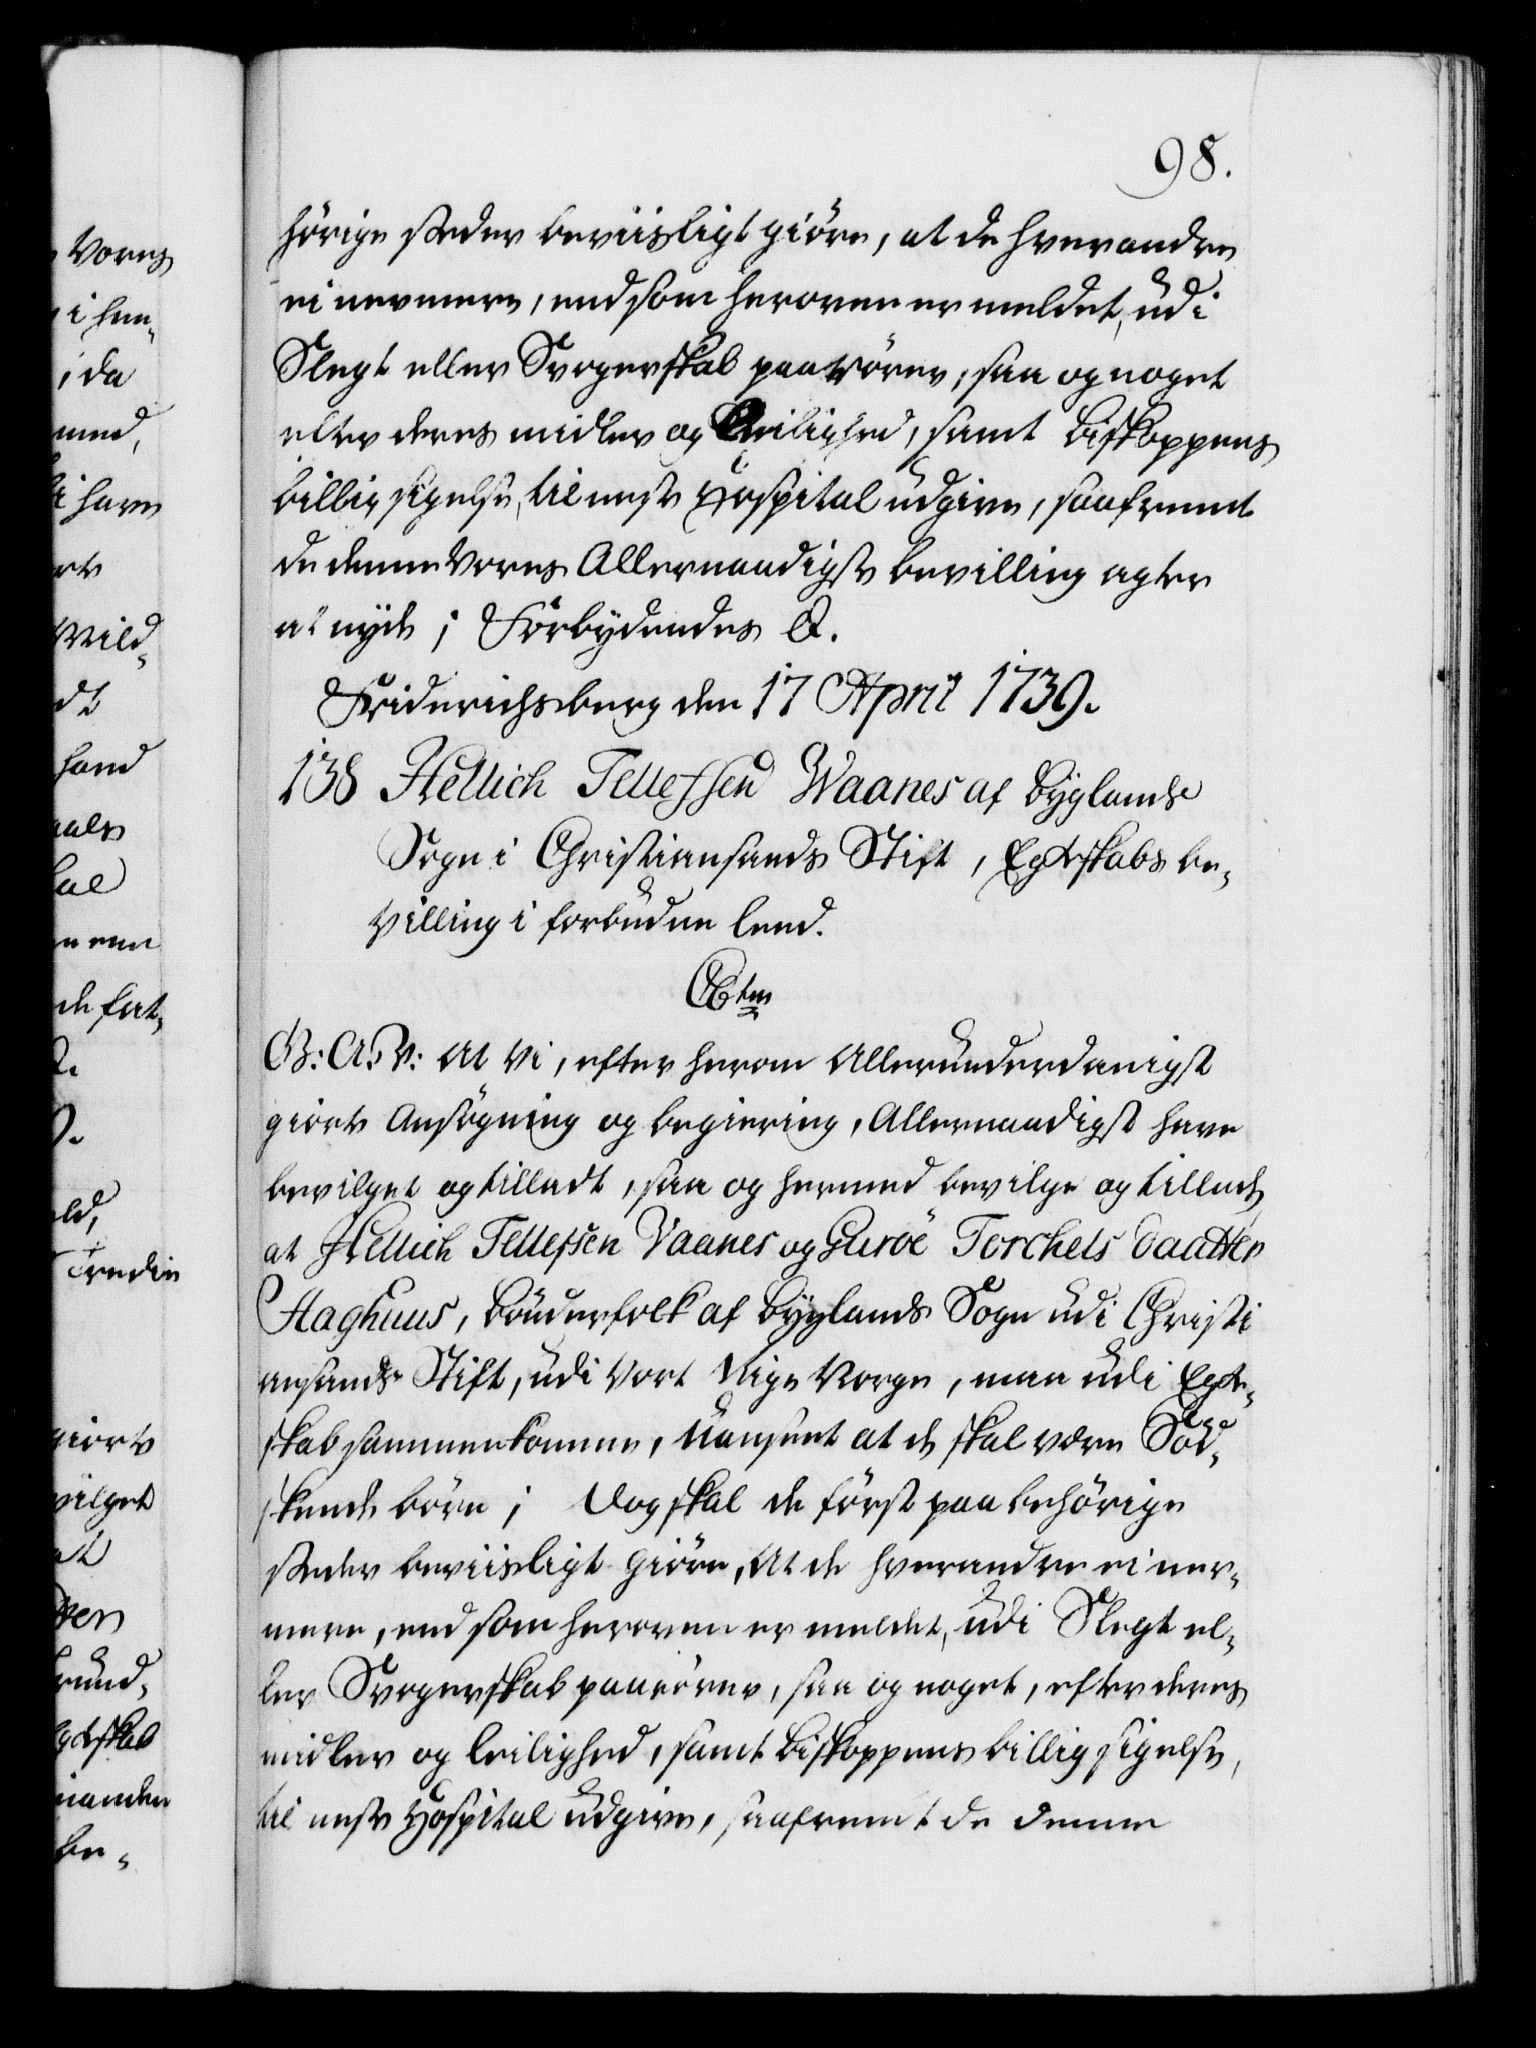 98.
hörige steder beviisligt giöre, at de hverandre
ei nermere, end som heroven er meldet, udi
Slegt eller Svogerskab paarörer, saa og noget
efter deres midler og Leilighed, samt Biskoppens
billig sigelse, til neste Hospital udgive, saafremt
de denne Vores Allernaadigste bevilling agter
at nyde; Forbydendes &.
Friderichsberg den 17 April 1739.
138 Hellich Tellefssen Waanes af Byglands
Sogn i Christiansands Stift, Egteskabs be-
villing i forbuden leed.
C6tus
G: A: V: At Vi, efter herom Allerunderdanigst
giorte Ansögning og begiering, Allernaadigst have
bevilget og tilladt, saa og hermed bevilge og tillade
at Hellich Tellefssen Vaanes og Guroe Torchels Daatter
Haghuus, bönderfolk af Byglands Sogn udi Christi
ansands Stift, udi Vort Rige Norge, maa udi Egte-
skab sammenkomme, uanseet at de skal være Söd-
skende börn; Dog skal de först paa behörige
steder beviisligt giöre, At de hverandre ei ner-
mere, end som heroven er meldet, udi Slegt el-
ler Svogerskab paarörer, saa og noget, efter deres
midler og leilighed, samt Biskoppens billig sigelse,
til neste Hospital udgive, saafremt de denne